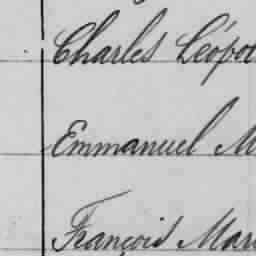 Charles Léopo
Emmanuel M
François Mari